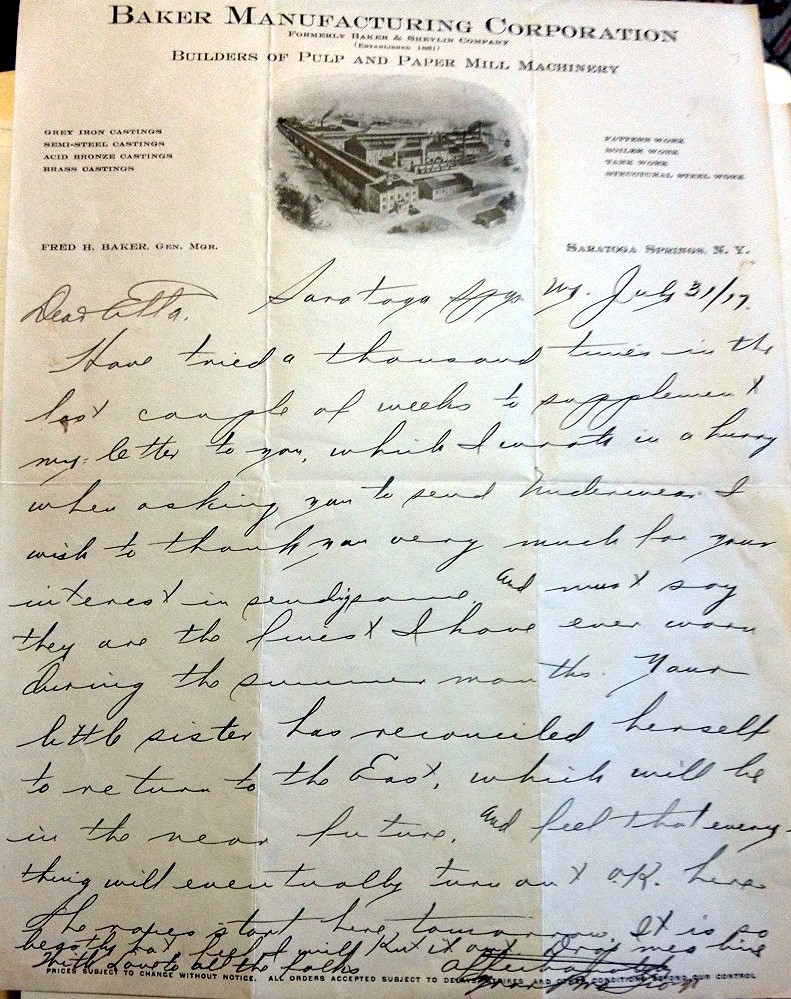 BAKER MANUFACTURING CORPORATION
FORMERLY BAKER & SHEVLIN COMPANY
(ESTABLISHED 1881)
BUILDERS OF PULP AND PAPER MILL MACHINERY
GREY IRON CASTINGS
SEMI-STEEL CASTINGS
ACID BRONZE CASTINGS
BRASS CASTINGS
PATTERN WORK
BOILER WORK
TANK WORK
STRUCTURAL STEEL WORK
FRED H. BAKER, GEN. MGR.
SARATOGA SPRINGS, N. Y.
Saratoga Spgs NY. July 31/17.
Dear Etta,
Have tried a thousand times in the
last couple of weeks to supplement
my letter to you, which I wrote in a hurry
when asking you to send Underwear I
wish to thank you very much for your
interest in sending same. and must say
they are the finest I have ever worn
during the summer months. Your
little sister has reconciled herself
to return to the East, which will be
in the near future, and feel that every-
thing will eventually turn out O.K. here
The races start here tomorrow. It is so
hot I will cut it out. Drop me a line
With Love to all the folks
PRICES SUBJECT TO CHANGE WITHOUT NOTICE. ALL ORDERS ACCEPTED SUBJECT TO DELAYS, STRIKES AND OTHER CONDITIONS BEYOND OUR CONTROL